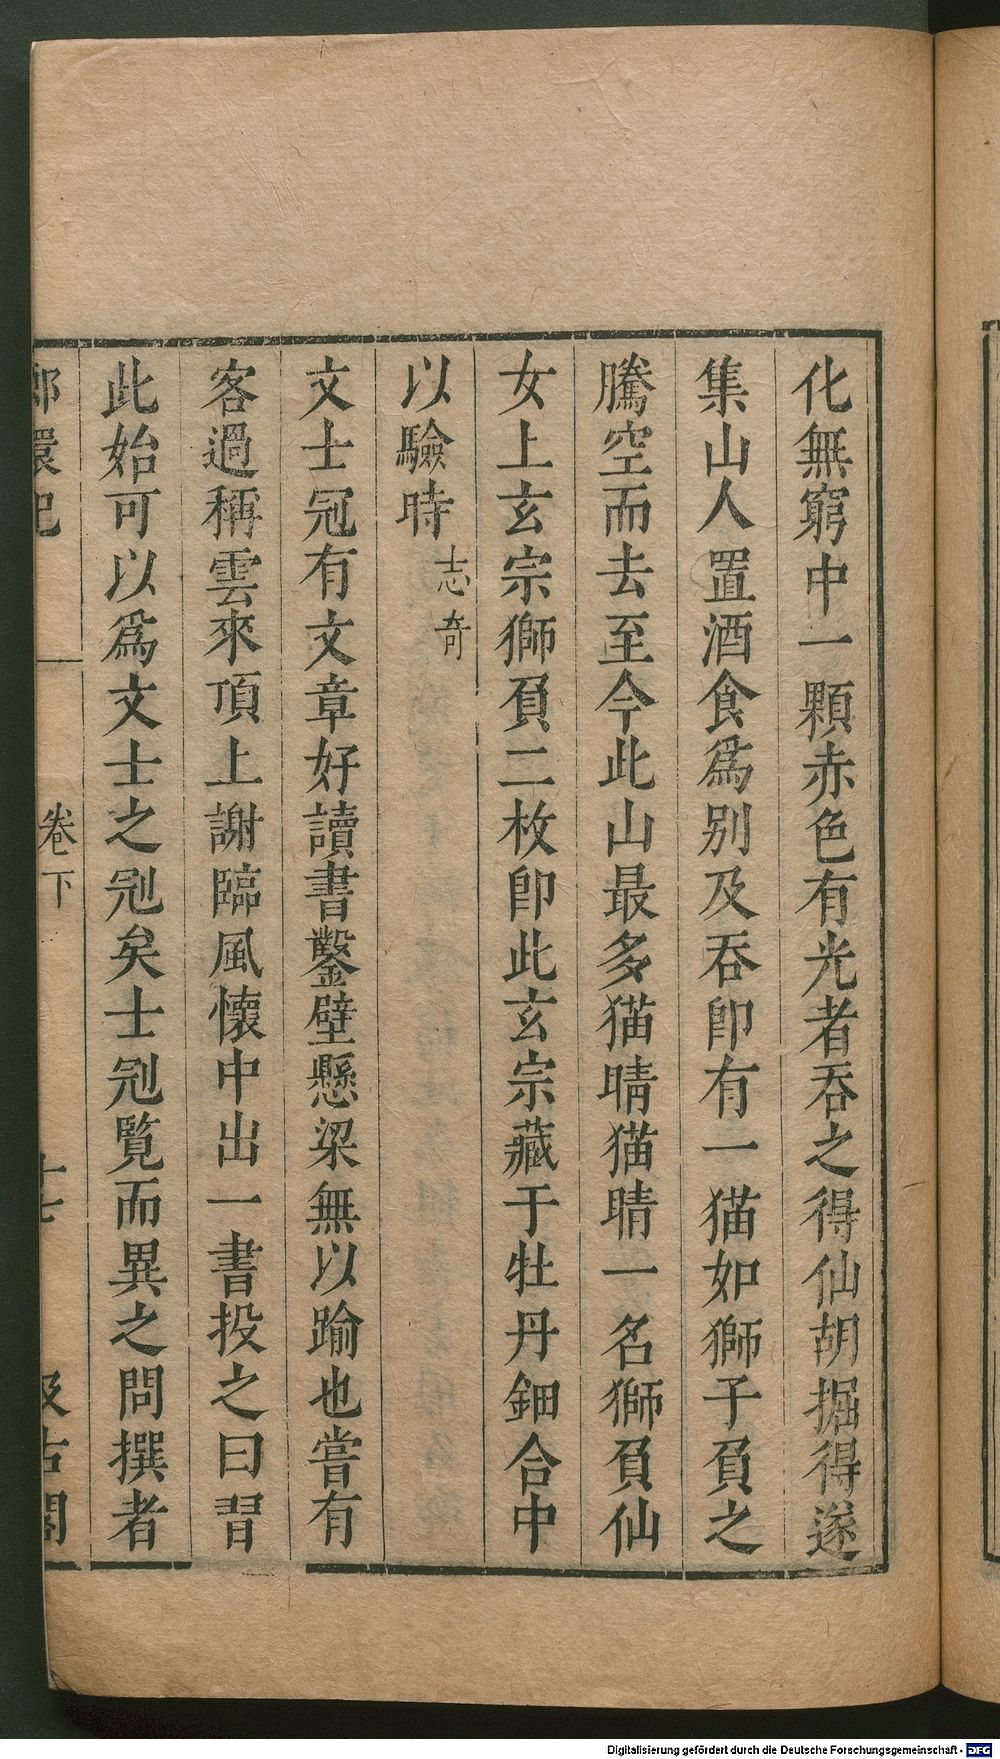 化無窮中一顆赤色有光者吞之得仙胡掘得遂
集山人置酒食爲别及吞卽有一猫如獅子負之
騰空而去至今此山最多猫睛猫睛一名獅負仙
女上玄宗獅負二枚卽此玄宗藏于牡丹鈿合中
以驗時志奇
文士冠有文章好讀書鑿壁懸梁無以踰也嘗有
客過稱雲來頂上謝臨風懷中出一書投之曰習
此始可以爲文士之冠矣士冠覧而異之問撰者
環記 卷下 十七 汲古閣
Digitalisierung gefördert durch die Deutsche Forschungsgemeinschaft - DFG